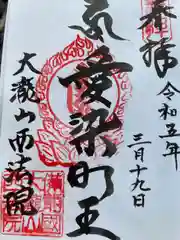 奉拝
令和五年
三月十九日
愛染明王
大瀧山西法院